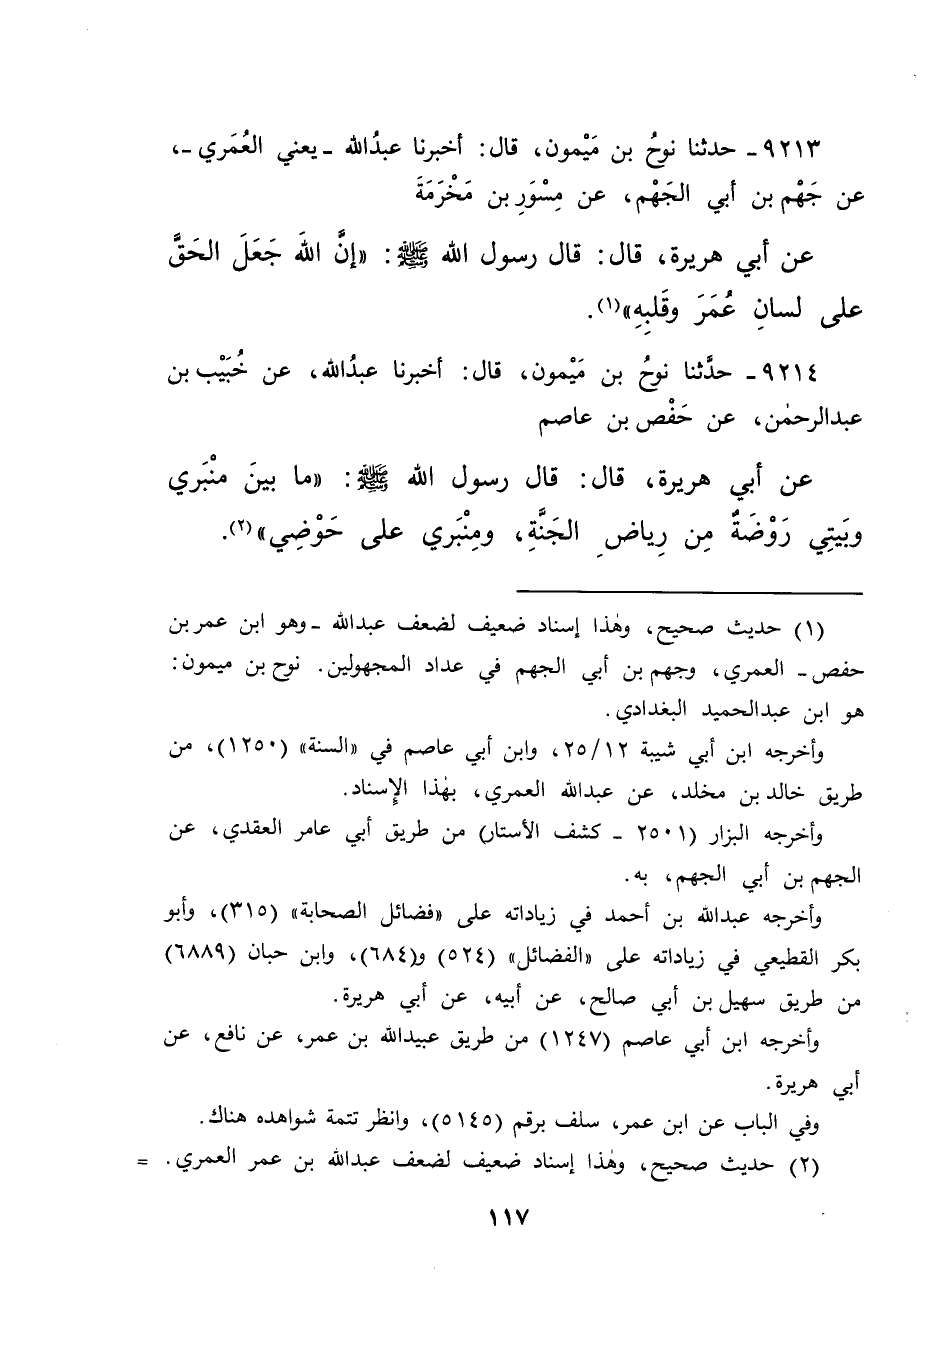 ٩٢١٣ـ حدثنا نوحُ بن مَيْمون، قال: أخبرنا عبدُالله ـ يعني العُمَري ـ،
عن جَهْم بن أبي الجَهْم، عن مِسْوَرِ بن مَخْرَمَةَ
عن أبي هريرة، قال: قال رسول الله ﷺ: «إنَّ اللهَ جَعَلَ الحَقَّ
على لسانِ عُمَرَ وقَلبِهِ»(١).
٩٢١٤ـ حدَّثنا نوحُ بن مَيْمون، قال: أخبرنا عبدُالله، عن خُبَيْب بن
عبدالرحمٰن، عن حَفْص بن عاصم
عن أبي هريرة، قال: قال رسول الله ﷺ: «ما بينَ منْبَري
وبَيتِي رَوْضَةٌ مِن رِياضِ الجَنَّةِ، ومِنْبَري على حَوْضِي»(٢).
(١) حديث صحيح، وهٰذا إسناد ضعيف لضعف عبدالله ـ وهو ابن عمر بن
حفص ـ العمري، وجهم بن أبي الجهم في عداد المجهولين. نوح بن ميمون:
هو ابن عبدالحميد البغدادي.
وأخرجه ابن أبي شيبة ٢٥/١٢، وابن أبي عاصم في «السنة» (١٢٥٠)، من
طريق خالد بن مخلد، عن عبدالله العمري، بهٰذا الإسناد.
وأخرجه البزار (٢٥٠١ ـ كشف الأستار) من طريق أبي عامر العقدي، عن
الجهم بن أبي الجهم، به.
وأخرجه عبدالله بن أحمد في زياداته على «فضائل الصحابة» (٣١٥)، وأبو
بكر القطيعي في زياداته على «الفضائل» (٥٢٤) و(٦٨٤)، وابن حبان (٦٨٨٩)
من طريق سهيل بن أبي صالح، عن أبيه، عن أبي هريرة.
وأخرجه ابن أبي عاصم (١٢٤٧) من طريق عبيدالله بن عمر، عن نافع، عن
أبي هريرة.
وفي الباب عن ابن عمر، سلف برقم (٥١٤٥)، وانظر تتمة شواهده هناك.
(٢) حديث صحيح، وهٰذا إسناد ضعيف لضعف عبدالله بن عمر العمري. =
١١٧